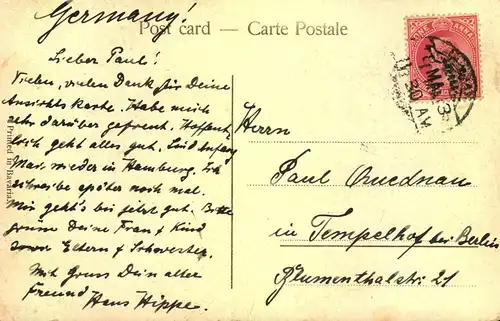 Germany!
Post card – Carte Postale
Lieber Paul!
Vielen, vielen Dank für Deine
Ansichtskarte. Habe mich
sehr darüber gefreut. Hoffent-
lich geht alles gut. Sind Anfang
Mai wieder in Hamburg. Ich
schreibe später noch mal.
Mir geht's bei jetzt gut. Bitte
grüsse Deine Frau & Kind
Eltern & Schwester.
Mit Gruss Dein alter
Freund Hans Hippe.
Printed in Bavaria.
ONE ANNA
20 AM
Herrn
Paul Quednau
in Tempelhof bei Berlin
Blumenthalstr. 21